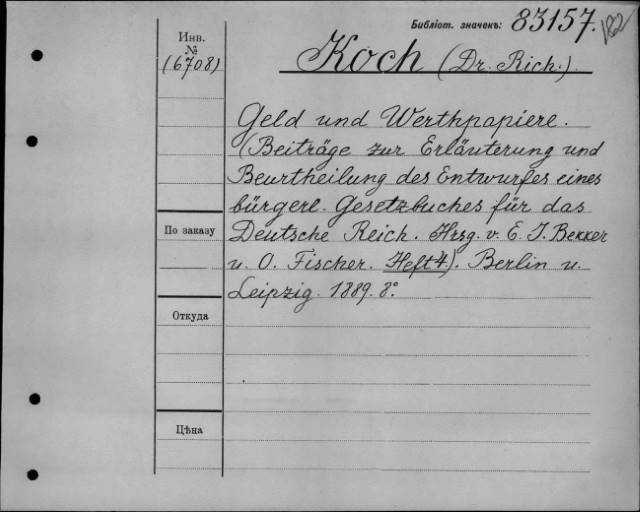 Библіот. значекъ: 83157.
182
Инв.
№
(6708)
Koch (Dr. Rich.)
Geld und Werthpapiere.
(Beiträge zur Erläuterung und
Beurtheilung des Entwurfes eines
bürgerl. Gesetzbuches für das
По заказу
Deutsche Reich. Hrsg. v. E. I. Bekker
u. O. Fischer. Heft 4). Berlin u.
Leipzig. 1889. 8°.
Откуда
Цѣна